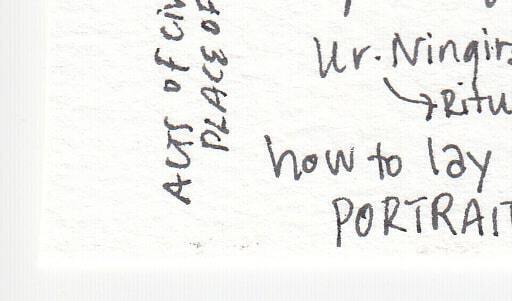 ACTS OF CIV
PLACE OF
Ur. Ningirs
RITU
how to lay
PORTRAIT